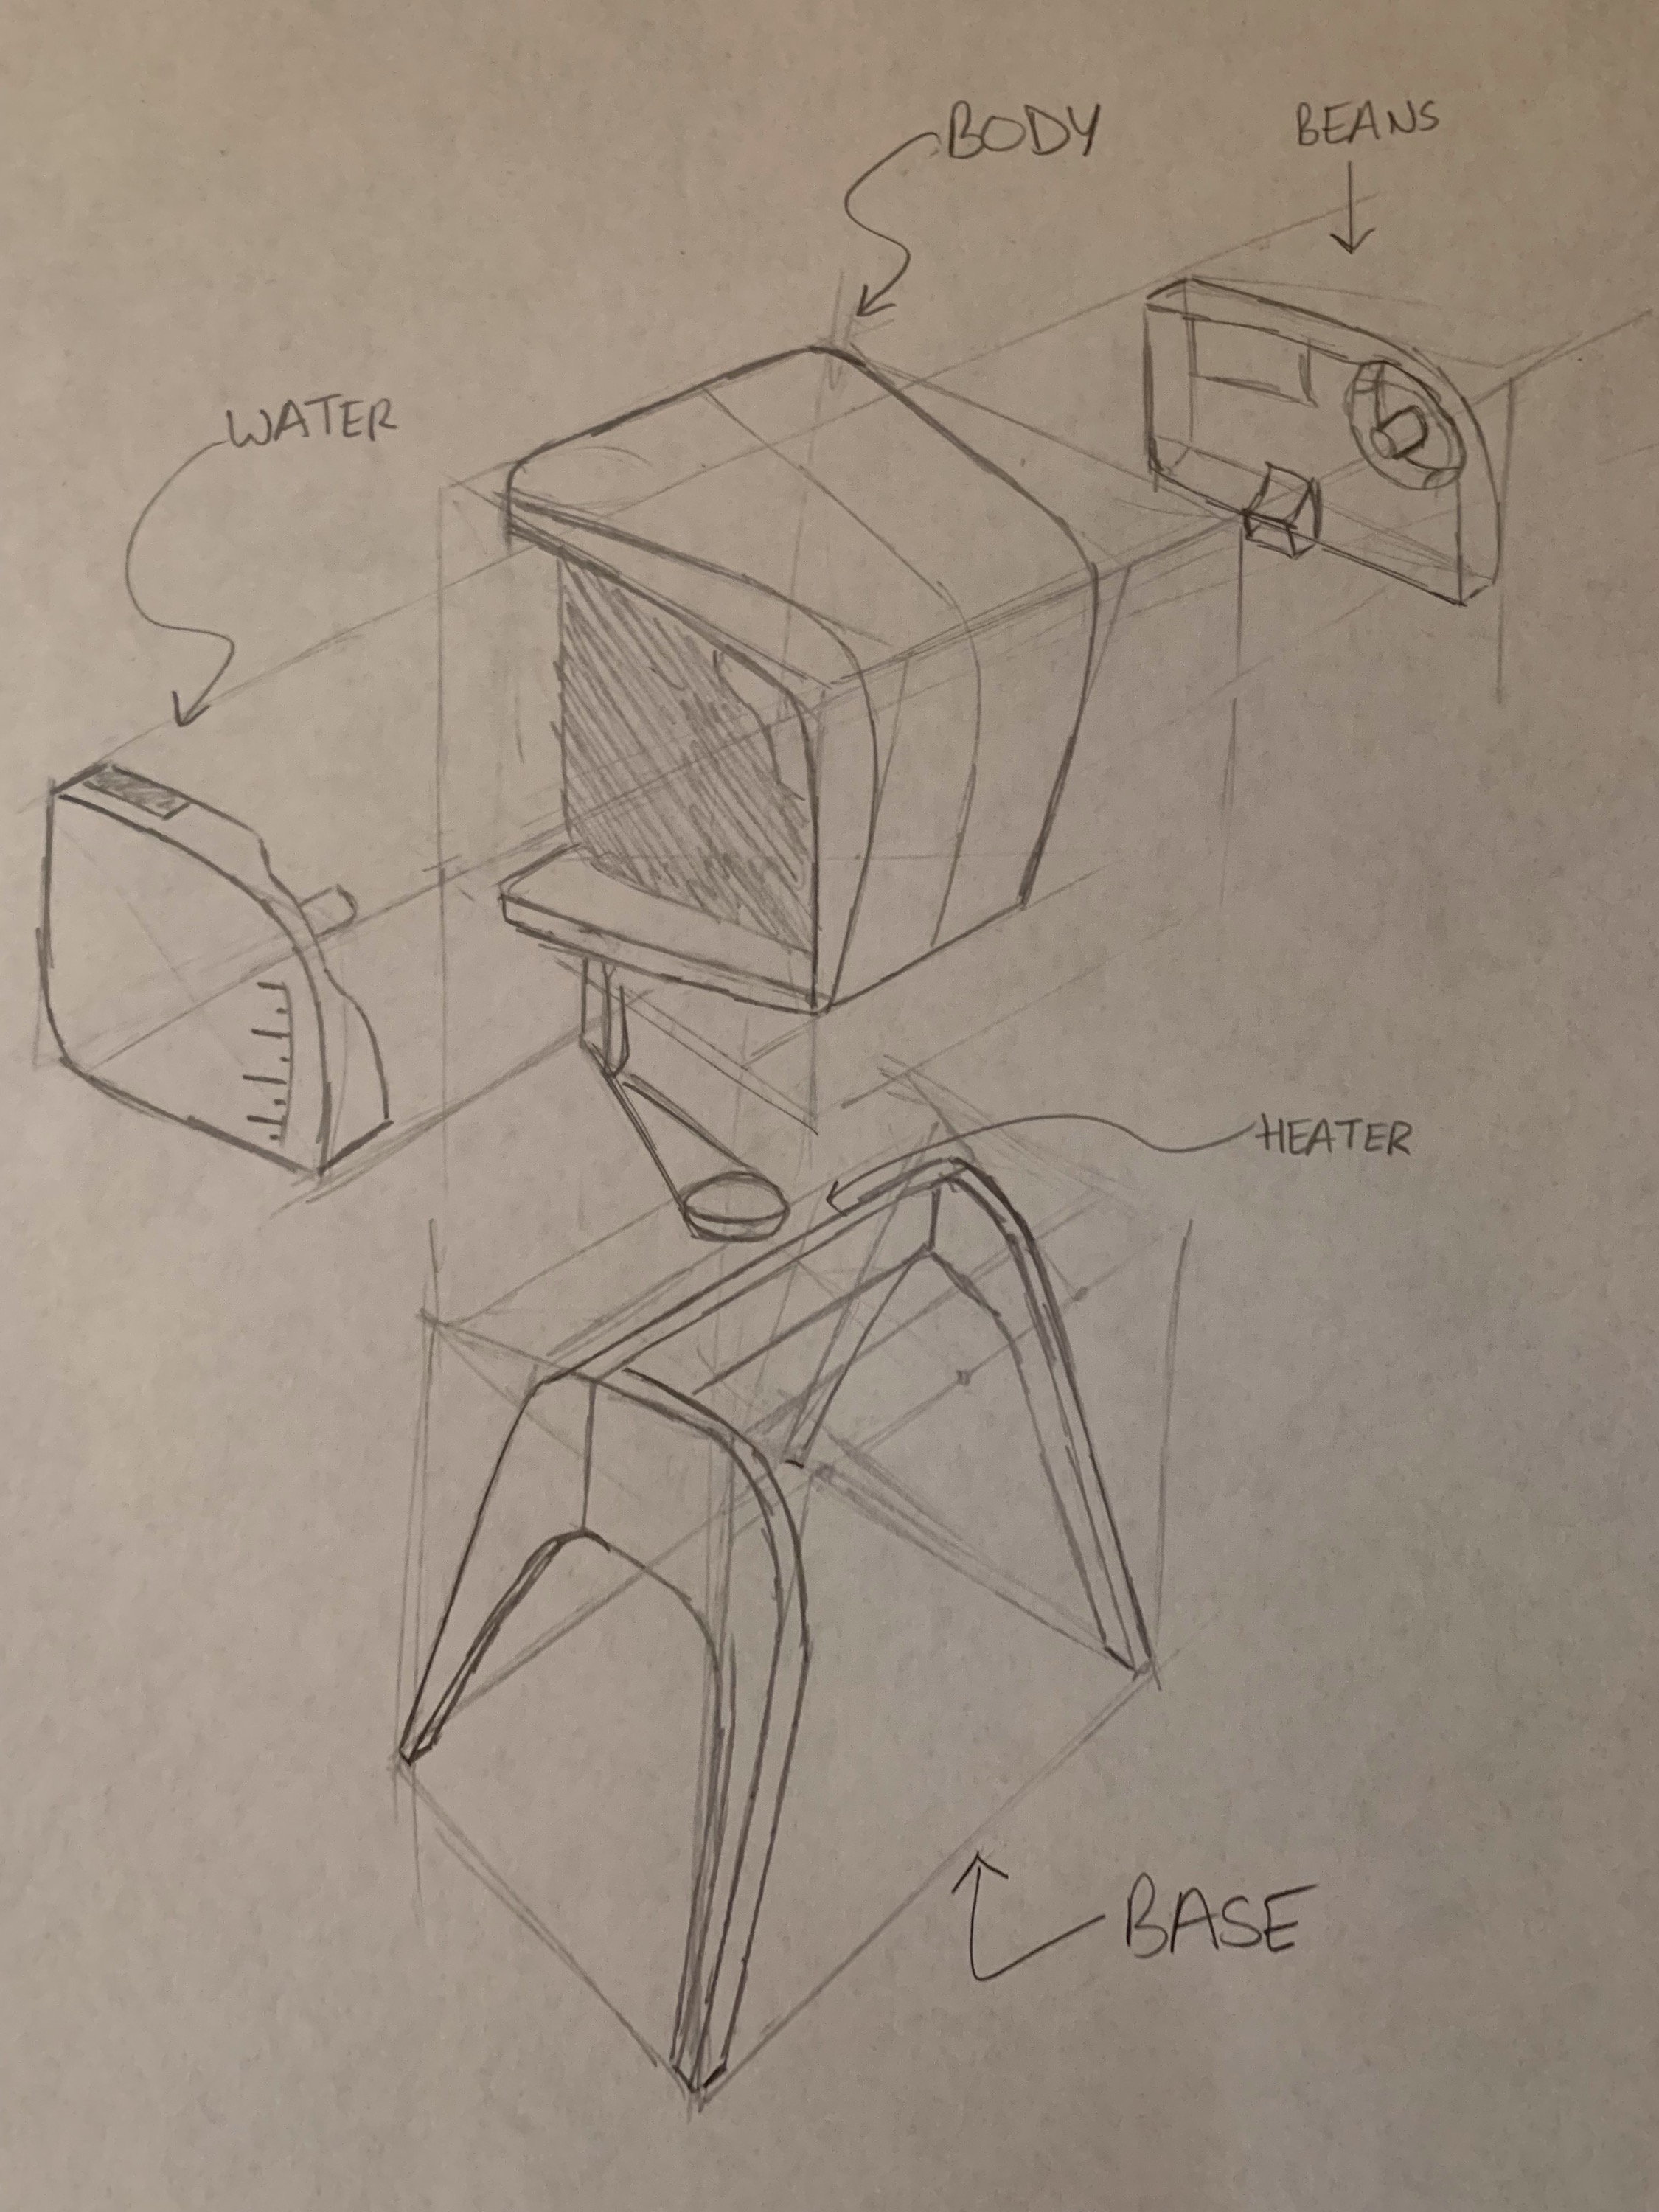 BODY
BEANS
WATER
HEATER
BASE